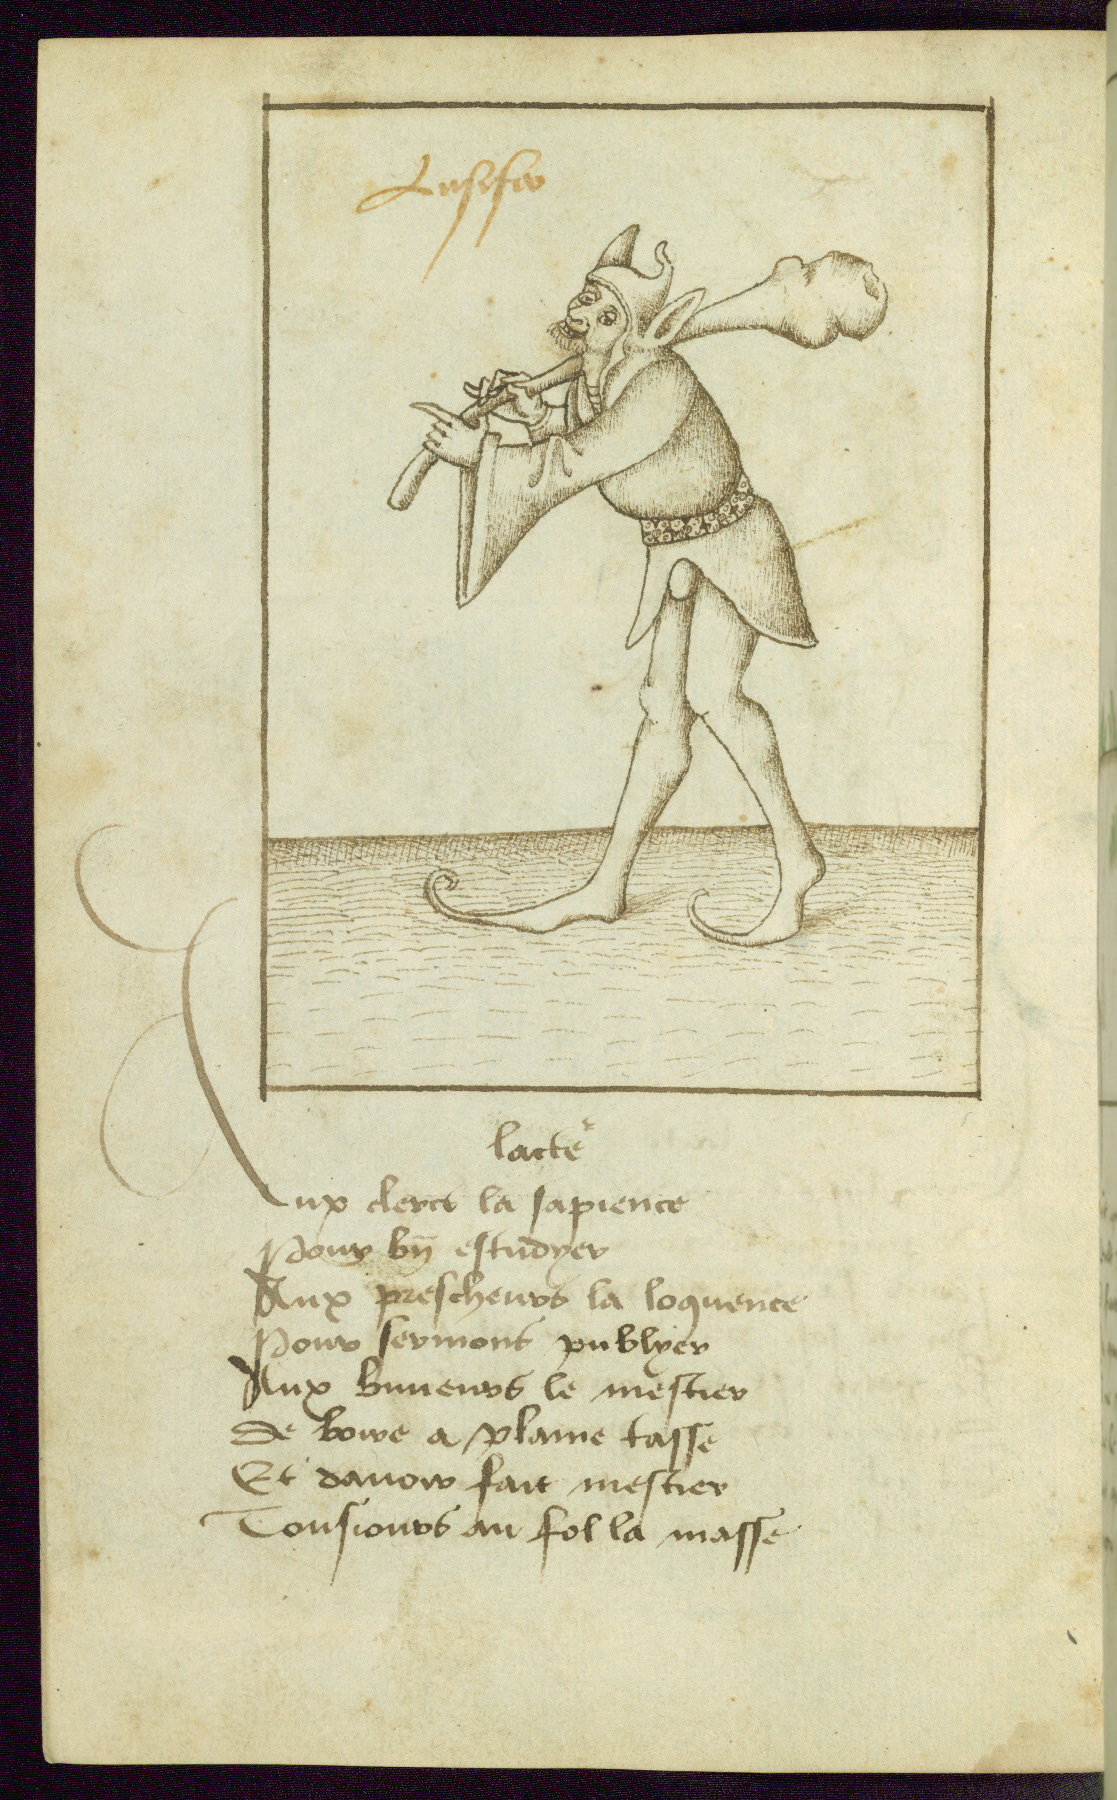 Lusifer
lacteᷣ
Aux clercs la sapience
Pour bn̄ estudyer
Aux prescheurs la loquence
Pour sermons publyer
Aux buueurs le mestier
De boire a plaine tasse
Et dauoir fait mestier
Tousiours au fol la masse